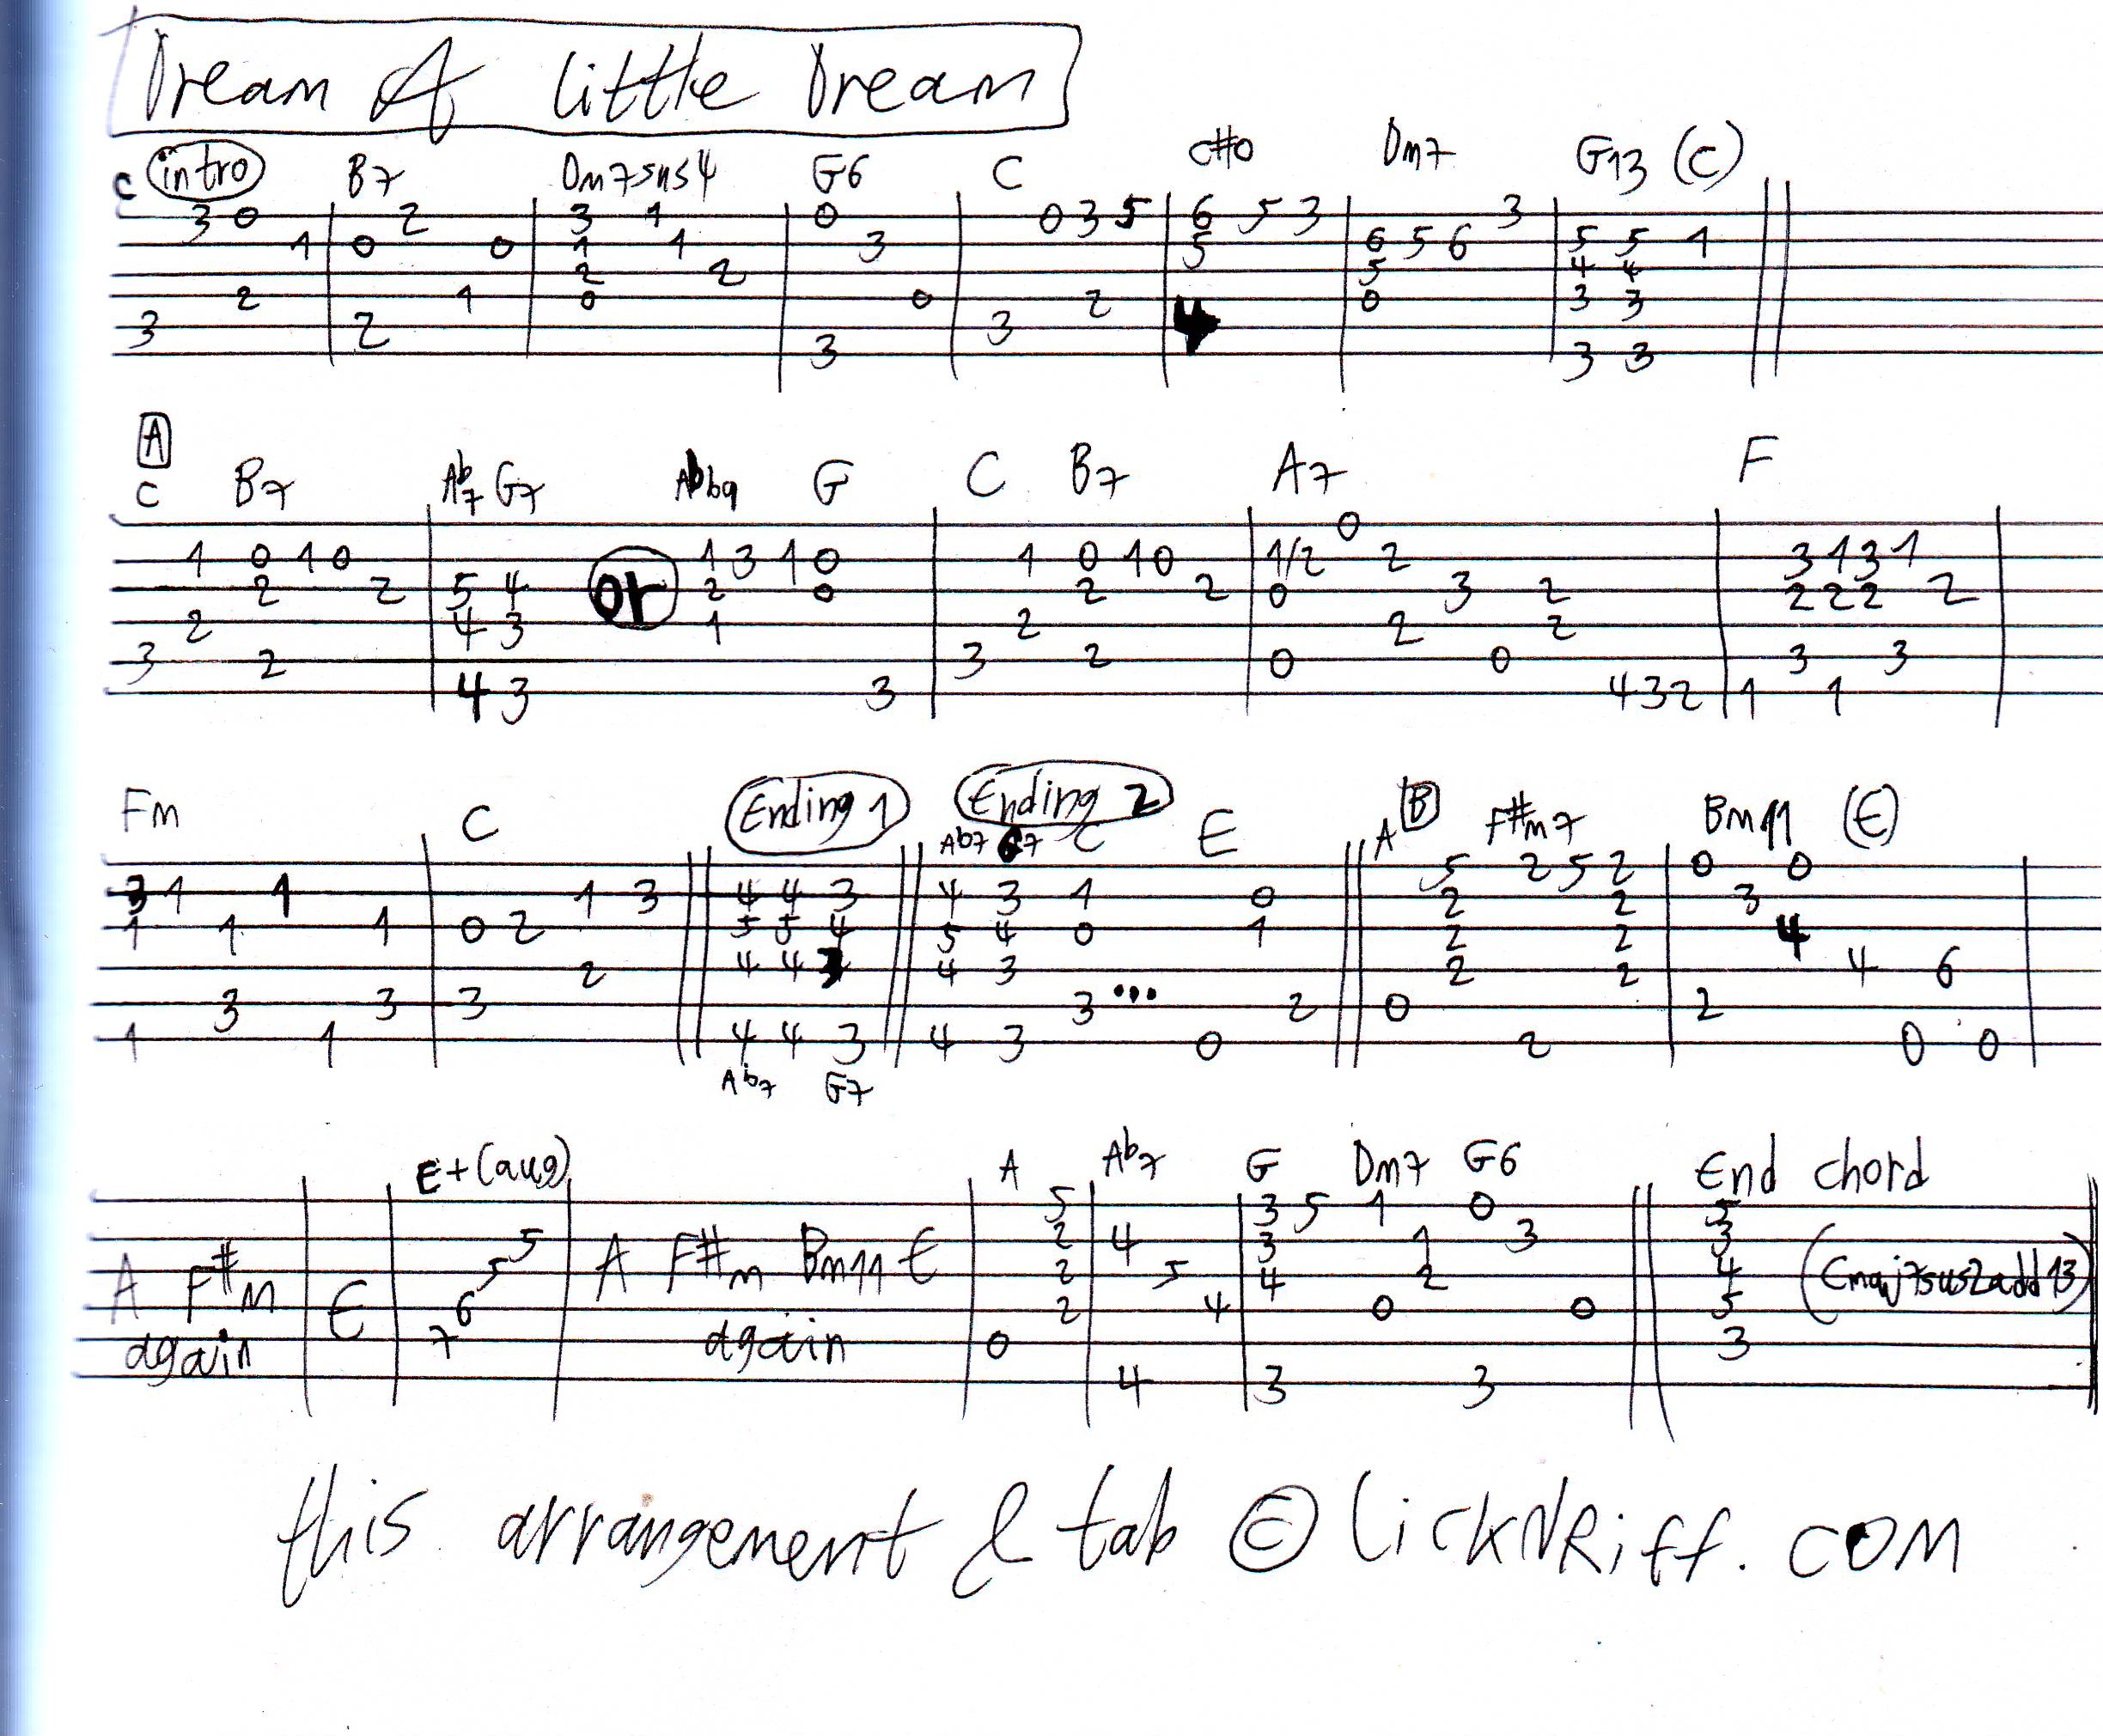 Dream A little Dream
C intro B7 Dm7sus4 G6 C C#o Dm7 G13 (C)
3 0 2 3 1 0 0 3 5 6 5 3 3
1 0 0 1 1 3 5 6 5 6 5 5 1
2 2 5 4 4
2 1 0 0 2 0 3 3
3 2 3 4
3 3 3
A
C B7 Ab7 G7 Abb9 G C B7 A7 F
0
1 0 1 0 1 3 1 0 1 0 1 0 1/2 2 3 1 3 1
2 2 5 4 or 2 0 2 2 0 3 2 2 2 2 2
2 4 3 1 2 2 2
3 2 3 2 0 0 3 3
4 3 3 4 3 2 1 1
Fm C Ending 1 Ending 2 B
Ab7 G7 C E A F#m7 Bm11 (E)
5 2 5 2 0 0
3 1 1 1 3 4 4 3 4 3 1 0 2 2 3
1 1 1 0 2 5 5 4 5 4 0 1 2 2 4
2 4 4 3 4 3 2 2 4 6
3 3 3 3... 2 0 2
1 1 4 4 3 4 3 0 2 0 0
Ab7 G7
E+(aug) A Ab7 G Dm7 G6 End chord
5 3 5 1 0 5
5 2 4 3 1 3 3
A F#m 5 A F#m Bm11 E 2 5 4 2 4 (Cmaj7sus2add13)
E 6 2 4 0 0 5
again 7 again 0 3
4 3 3
this arrangement & tab © LickNRiff.com